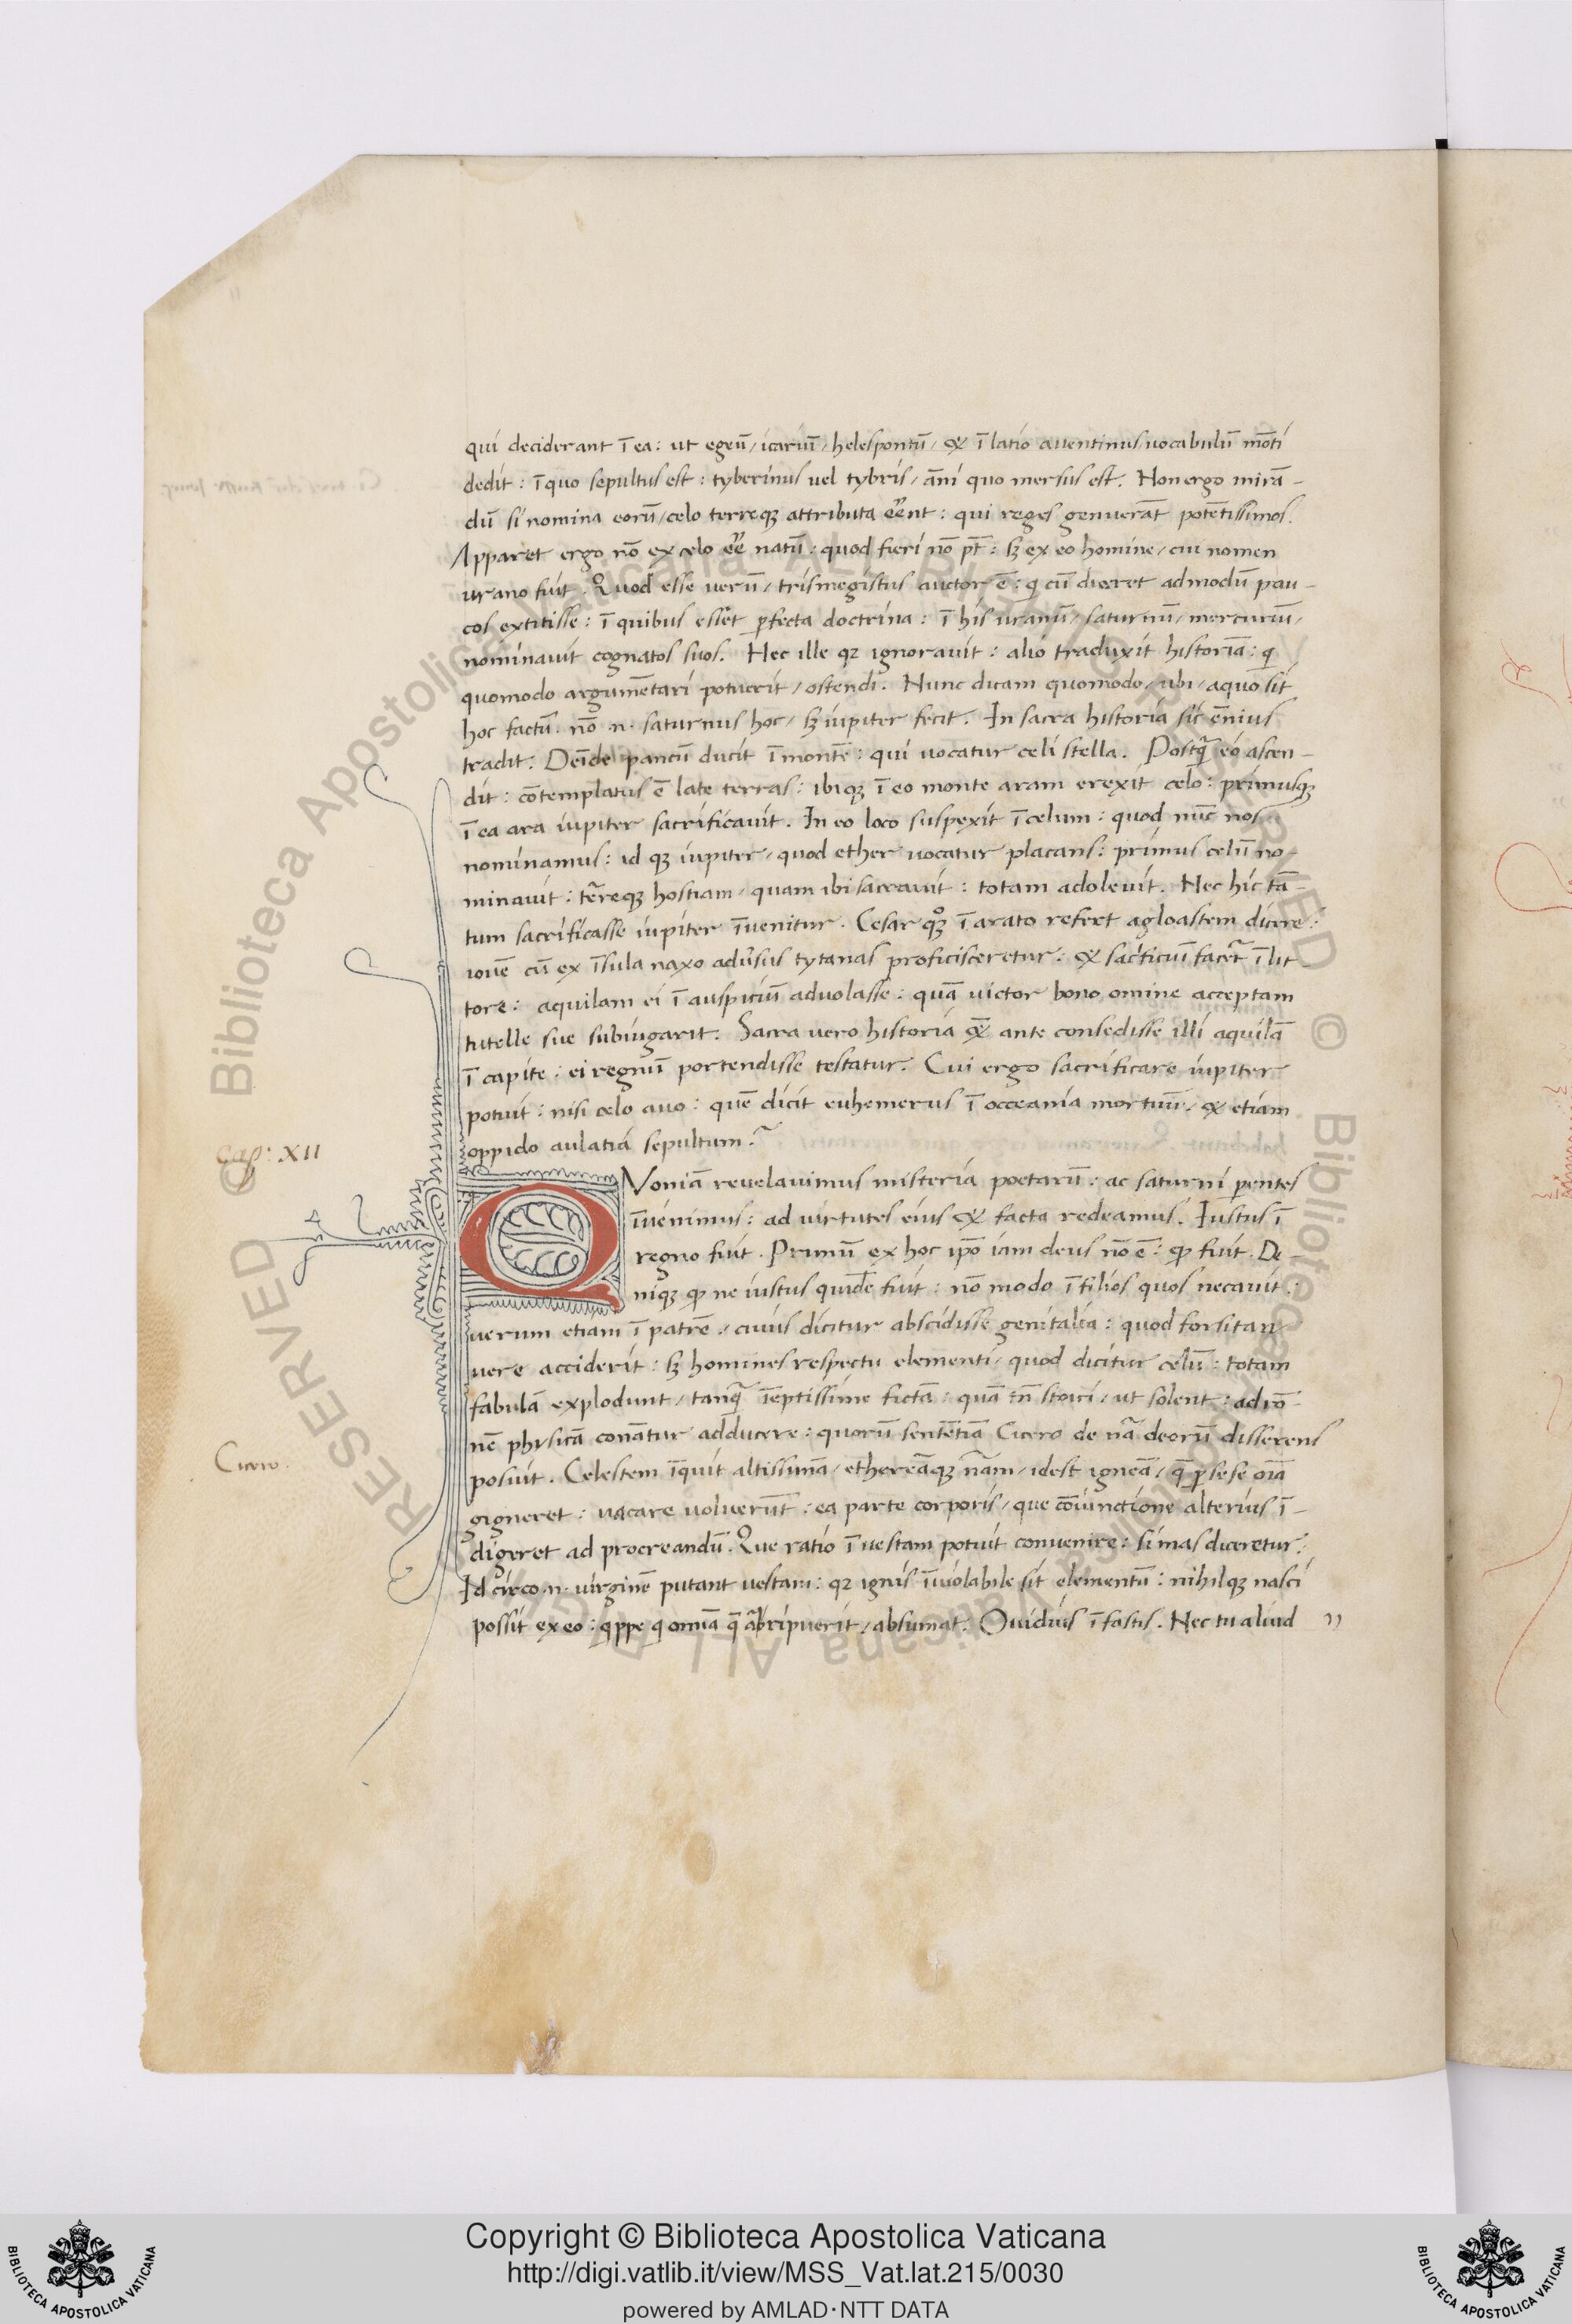 qui deciderant ī ea: ut egeū/icariū/helespontū/& ī latio aventinus vocabulū mōti
dedit: ī quo sepultus est: tyberinus uel tybris/āni quo mersus est. Non ergo mirā-
dū si nomina eorū/celo terreqꝫ attributa eēnt: qui reges genuerāt potētissimos.
Apparet ergo nō ex celo eē natū: quod fieri nō pt̄: sꝫ ex eo homine/cui nomen
urano fuit. Quod esse uerū/trismegistus auctor ē: q cū diceret admodū pau-
cos extitisse: ī quibus esset ꝑfecta doctrina: ī his uranū/saturnū/mercuriū/
nominauit cognatos suos. Hec ille qꝛ ignorauit: alio traduxit historiā: q
quomodo argumētari potuerit/ostendi. Nunc dicam quomodo/ubi/aquo sit
hoc factū. nō .n. saturnus hoc/sꝫ iupiter fecit. In sacra historia sic ēnius
tradit: Deīde pancū ducit ī montē: qui uocatur celi stella. Postq̄ eo ascen-
dit: cōtemplatus ē late terras: ibiqꝫ ī eo monte aram erexit celo: primusqꝫ
ī ea ara iupiter sacrificauit. In eo loco suspexit ī celum: quod nūc nos
nominamus: id qꝫ iupiter/quod ether uocatur placans: primus celū no-
minauit: tēreqꝫ hostiam/quam ibi sacrauit: totam adoleuit. Nec hic tā-
tum sacrificasse iupiter īuenitur. Cesar qꝫº ī arato refert agloastem dicere:
iouē cū ex īsula naxo adu̅sus tytanas proficisceretur: & sac̄ficiū facer̄ ī lit-
tore: aquilam ei ī auspiciū aduolasse: quā uictor bono omine acceptam
tutelle sue subiugarit. Sacra uero historia &̄ ante consedisse illi aquilā
ī capite: ei regnū portendisse testatur. Cui ergo sacrificare iupiter
potuit: nisi celo auo: quē dicit euhemerus ī occeania mortuū/& etiam
oppido aulatia sepultum.
Cap: XII
QVoniā reuelauimus misteria poetarū: ac saturni pentes
īuenimus: ad uirtutes eius & facta redeamus. Iustus ī
regno fuit. Primū ex hoc ipō iam deus nō ē: ꝙ fuit. De-
niqꝫ ꝙ ne iustus quidē fuit: nō modo ī filios quos necauit:
uerum etiam ī patrē/cuius dicitur abscidisse genitalia: quod forsitan
uere acciderit: sꝫ homines respectu elementi/quod dicitur celū: totam
fabulā explodunt/tanq̄ īeptissime fictā: quā tn̄ stoici/ut solent: ad rō-
nē physicā conātur adducere: quorū sentētiā Cicero de nā deorū disserens
Cicero.
posuit. Celestem īquit altissimā/ethereāqꝫ nām/idest igneā/q̄ ꝑ sese oīa
gigneret: uacare uoluerūt: ea parte corporis/que cōiunctione alterius ī-
digeret ad procreandū. Que ratio ī uestam potuit conuenire: si mas diceretur:
Id circo .n. uirginē putant uestam: qꝛ ignis īuiolabile sit elementū: nihilqꝫ nasci
possit ex eo: qppe q omīa q̄ abripuerit/absumat. Ouidius ī fastis. Nec tu aliud
Copyright © Biblioteca Apostolica Vaticana
http://digi.vatlib.it/view/MSS_Vat.lat.215/0030
powered by AMLAD·NTT DATA